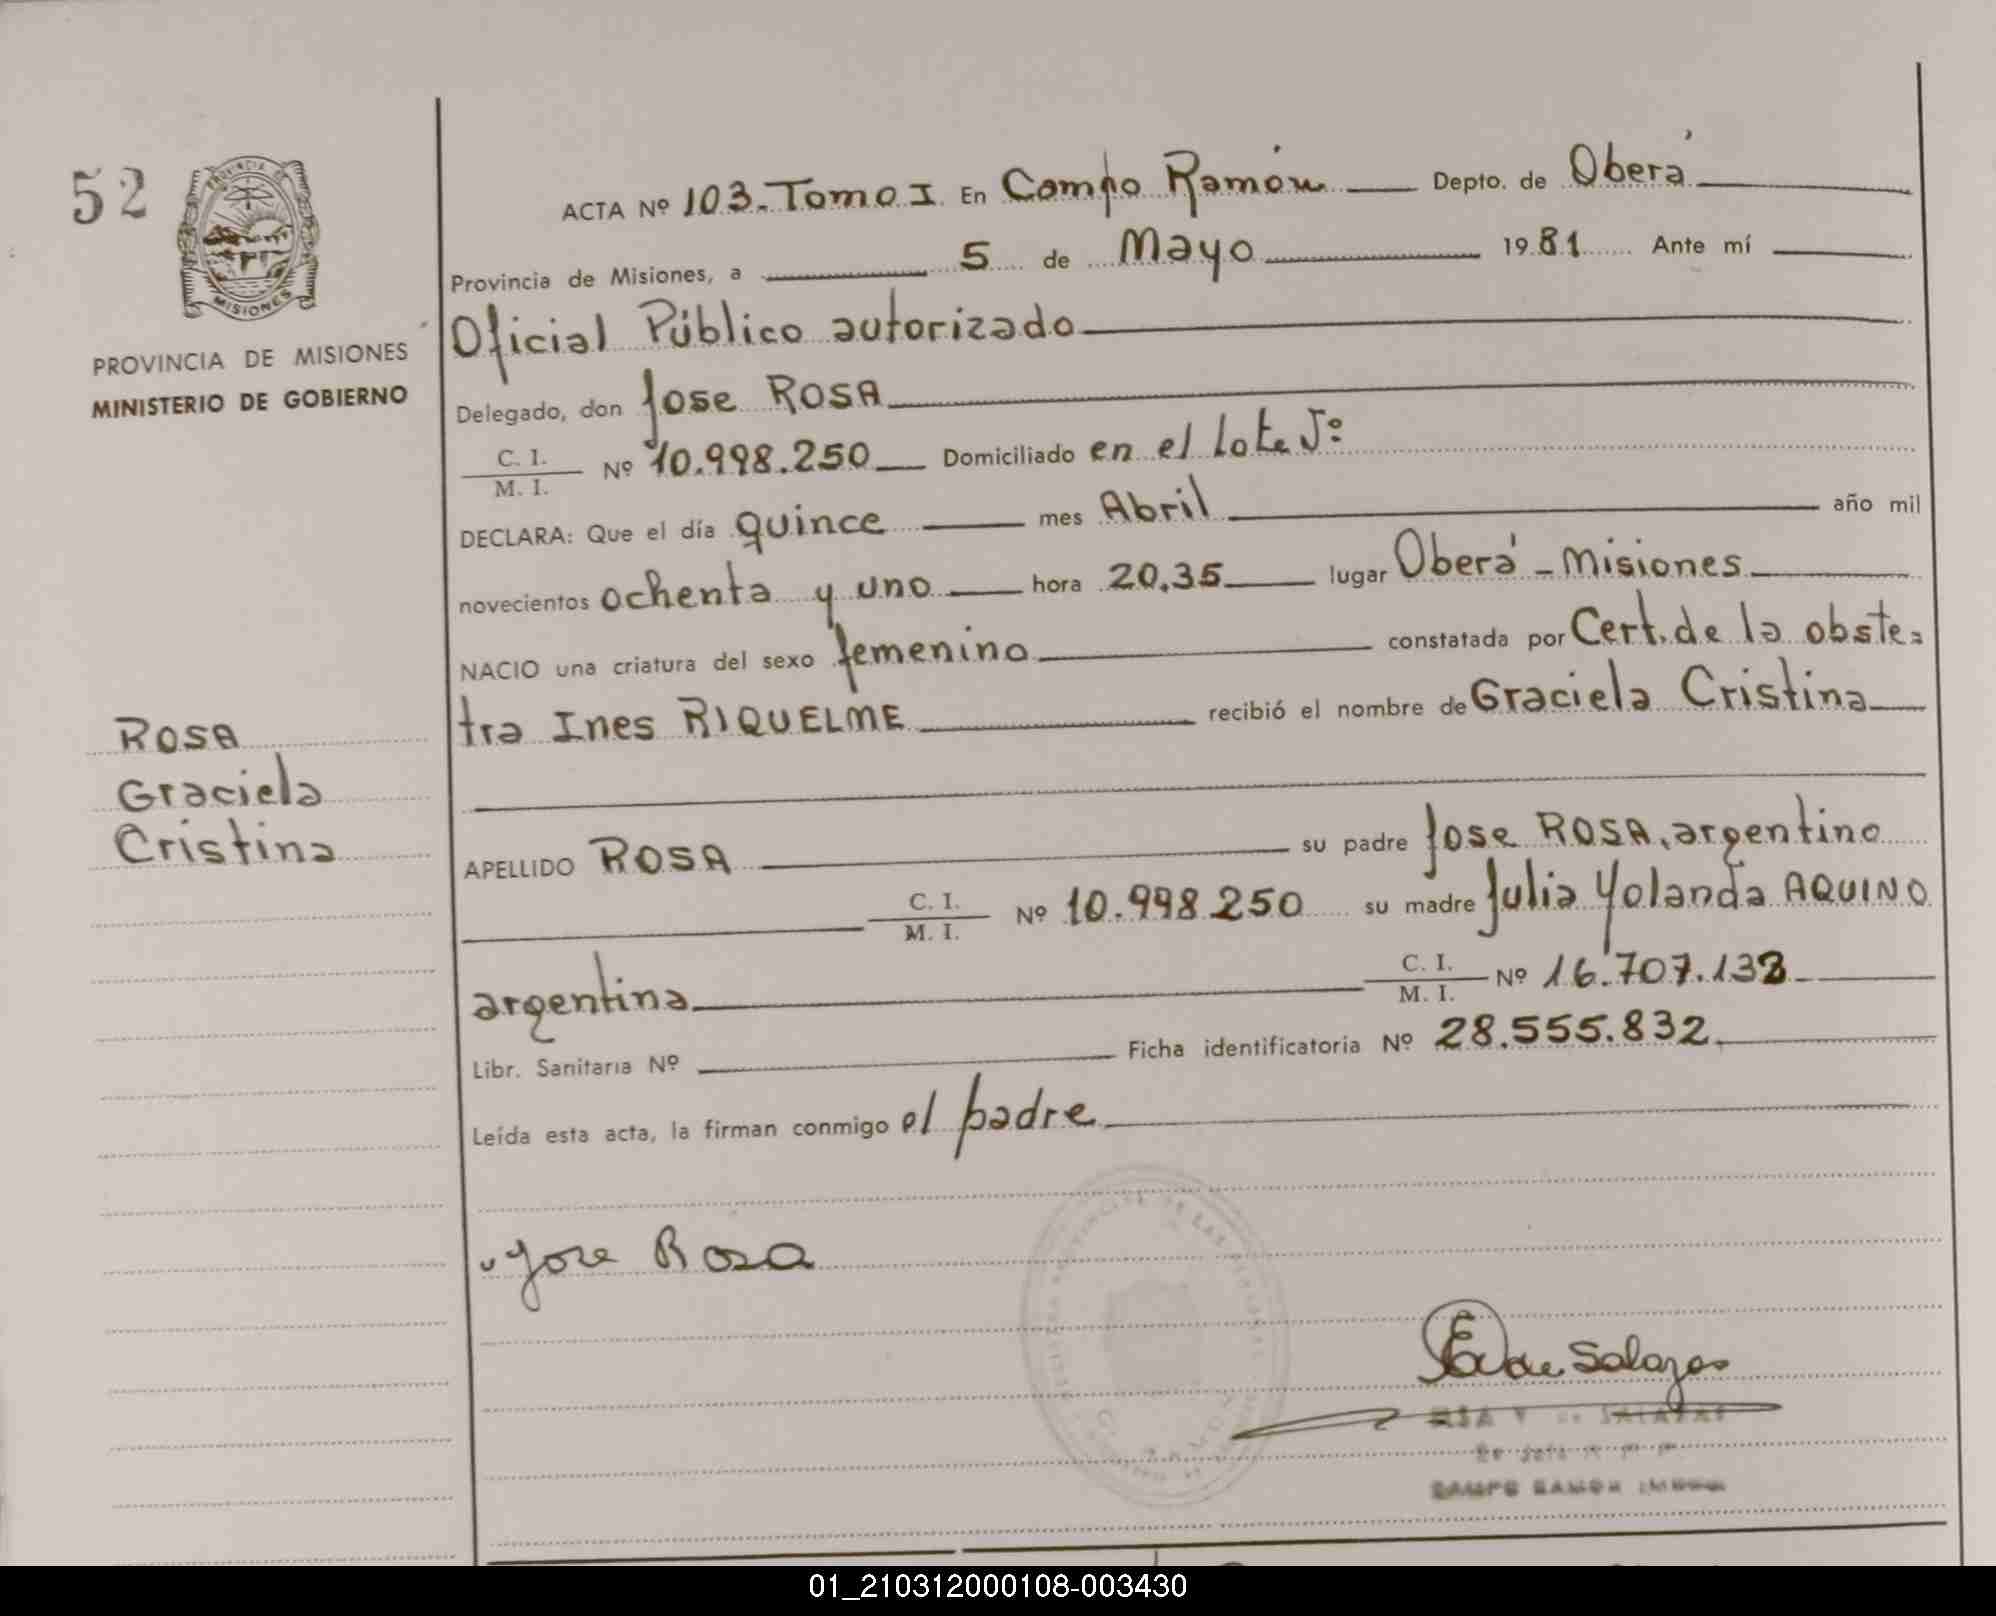 52
PROVINCIA DE MISIONES
PROVINCIA DE MISIONES
MINISTERIO DE GOBIERNO
ROSA
Graciela
Cristina
ACTA Nº 103. Tomo I En Campo Ramón Depto. de Oberá
Provincia de Misiones, a 5 de Mayo 1981 Ante mí
Oficial Público autorizado
Delegado, don Jose ROSA
C. I.
M. I. Nº 10.998.250 Domiciliado en el lote Jº
DECLARA: Que el día quince mes Abril año mil
novecientos ochenta y uno hora 20,35 lugar Oberá - Misiones
NACIO una criatura del sexo femenino constatada por Cert. de la obste=
tra Ines RIQUELME recibió el nombre de Graciela Cristina
APELLIDO ROSA su padre Jose ROSA, argentino
C. I.
M. I. Nº 10.998.250 su madre Julia Yolanda AQUINO
argentina C. I.
M. I. Nº 16.707.132
Libr. Sanitaria Nº Ficha identificatoria Nº 28.555.832
Leída esta acta, la firman conmigo el padre
Jose Rosa
de Salazar
DE SALAZAR
CAMPO RAMON
01_210312000108-003430